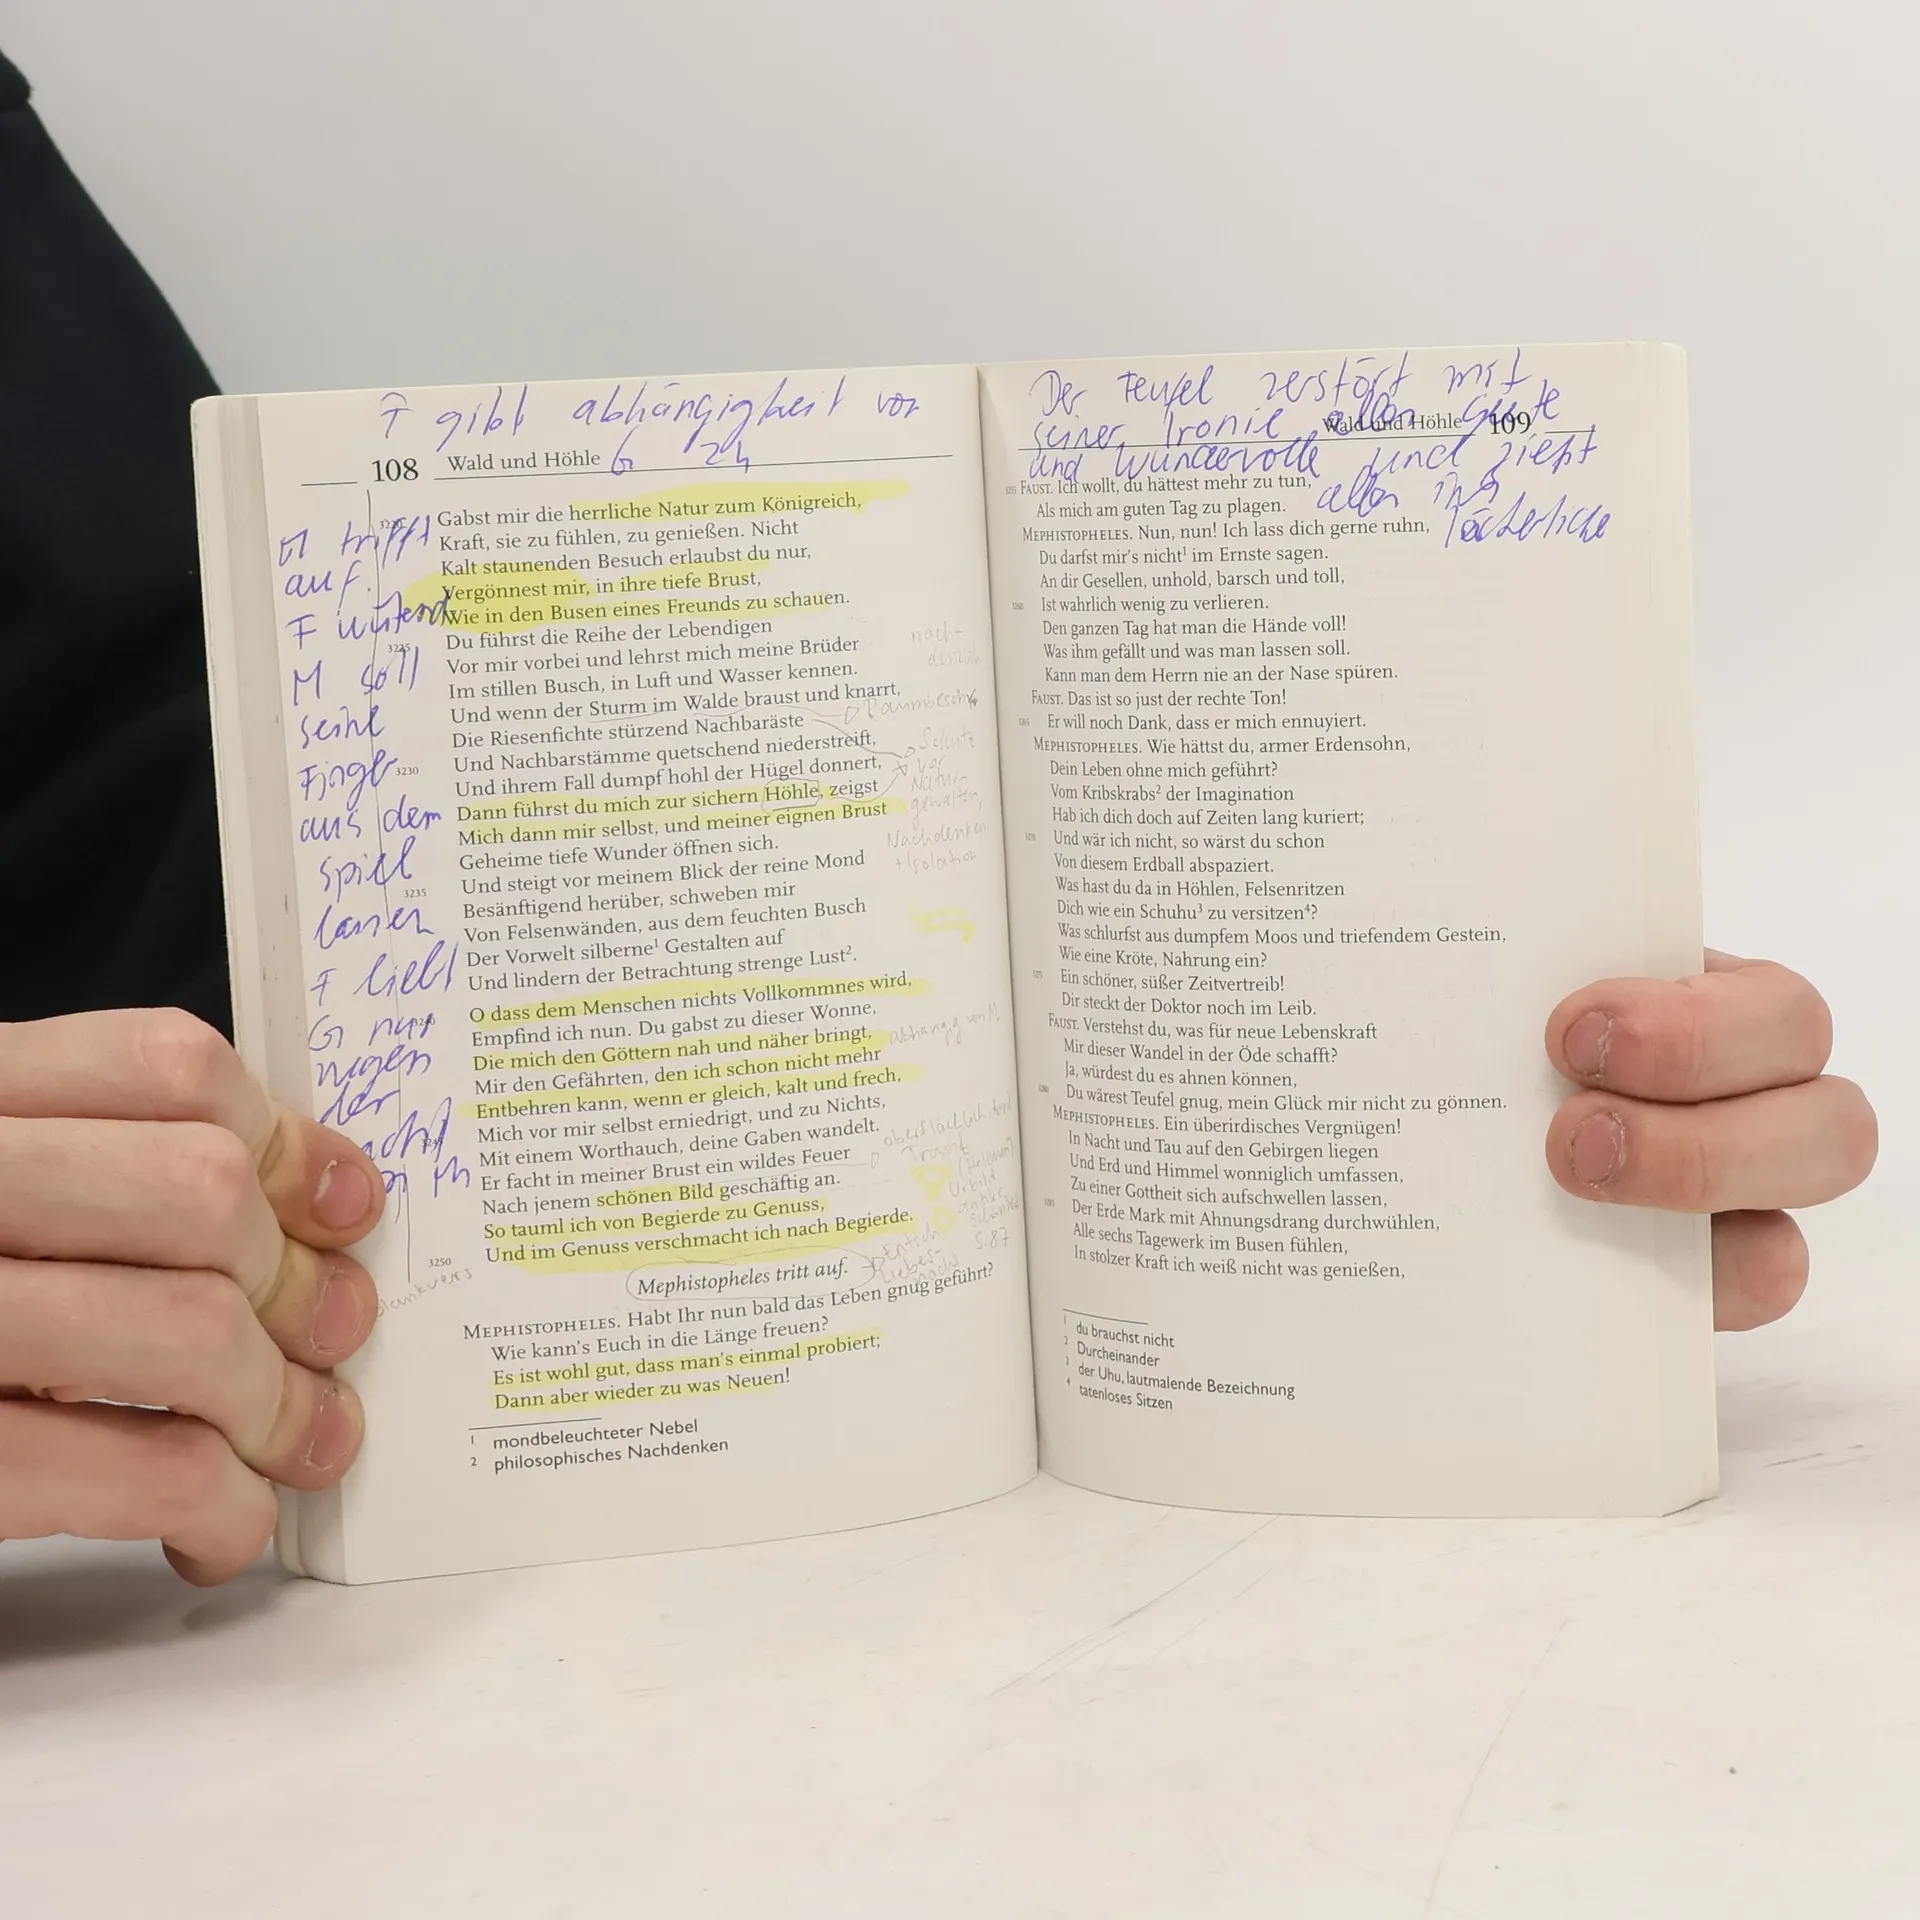 F gibt abhängigkeit von
G zu
108 Wald und Höhle
M trifft
auf.
F wütend
M soll
seine
Finger
aus dem
spiel
lassen
F liebt
G nur
wegen
der
Gabst mir die herrliche Natur zum Königreich,
3220 Kraft, sie zu fühlen, zu genießen. Nicht
Kalt staunenden Besuch erlaubst du nur,
Vergönnest mir, in ihre tiefe Brust,
Wie in den Busen eines Freunds zu schauen.
Du führst die Reihe der Lebendigen
3225 Vor mir vorbei und lehrst mich meine Brüder
Im stillen Busch, in Luft und Wasser kennen.
Und wenn der Sturm im Walde braust und knarrt,
Die Riesenfichte stürzend Nachbaräste
Und Nachbarstämme quetschend niederstreift,
3230 Und ihrem Fall dumpf hohl der Hügel donnert,
Dann führst du mich zur sichern Höhle, zeigst
Mich dann mir selbst, und meiner eignen Brust
Geheime tiefe Wunder öffnen sich.
Und steigt vor meinem Blick der reine Mond
3235 Besänftigend herüber, schweben mir
Von Felsenwänden, aus dem feuchten Busch
Der Vorwelt silberne¹ Gestalten auf
Und lindern der Betrachtung strenge Lust².
O dass dem Menschen nichts Vollkommnes wird,
3240 Empfind ich nun. Du gabst zu dieser Wonne,
Die mich den Göttern nah und näher bringt,
Mir den Gefährten, den ich schon nicht mehr
Entbehren kann, wenn er gleich, kalt und frech,
Mich vor mir selbst erniedrigt, und zu Nichts,
3245 Mit einem Worthauch, deine Gaben wandelt.
Er facht in meiner Brust ein wildes Feuer
Nach jenem schönen Bild geschäftig an.
So tauml ich von Begierde zu Genuss,
Und im Genuss verschmacht ich nach Begierde.
3250 Mephistopheles tritt auf.
MEPHISTOPHELES. Habt Ihr nun bald das Leben gnug geführt?
Wie kann's Euch in die Länge freuen?
Es ist wohl gut, dass man's einmal probiert;
Dann aber wieder zu was Neuen!
1 mondbeleuchteter Nebel
2 philosophisches Nachdenken
nach-
denklich
Schutz
vor
Natur-
gewalten,
Nachdenken
+ Isolation
abhängig von M
oberflächlich
Trank
(Helena)
Urbild
antike
S. 87
Blankvers
Der Teufel zerstört mit
seiner Ironie alles Gute
und Wundervolle und zieht
alles ins
lächerliche
Wald und Höhle 109
3255 FAUST. Ich wollt, du hättest mehr zu tun,
Als mich am guten Tag zu plagen.
MEPHISTOPHELES. Nun, nun! Ich lass dich gerne ruhn,
Du darfst mir's nicht¹ im Ernste sagen.
An dir Gesellen, unhold, barsch und toll,
3260 Ist wahrlich wenig zu verlieren.
Den ganzen Tag hat man die Hände voll!
Was ihm gefällt und was man lassen soll.
Kann man dem Herrn nie an der Nase spüren.
FAUST. Das ist so just der rechte Ton!
3265 Er will noch Dank, dass er mich ennuyiert.
MEPHISTOPHELES. Wie hättst du, armer Erdensohn,
Dein Leben ohne mich geführt?
Vom Kribskrabs² der Imagination
Hab ich dich doch auf Zeiten lang kuriert;
3270 Und wär ich nicht, so wärst du schon
Von diesem Erdball abspaziert.
Was hast du da in Höhlen, Felsenritzen
Dich wie ein Schuhu³ zu versitzen⁴?
Was schlurfst aus dumpfem Moos und triefendem Gestein,
Wie eine Kröte, Nahrung ein?
3275 Ein schöner, süßer Zeitvertreib!
Dir steckt der Doktor noch im Leib.
FAUST. Verstehst du, was für neue Lebenskraft
Mir dieser Wandel in der Öde schafft?
Ja, würdest du es ahnen können,
3280 Du wärest Teufel gnug, mein Glück mir nicht zu gönnen.
MEPHISTOPHELES. Ein überirdisches Vergnügen!
In Nacht und Tau auf den Gebirgen liegen
Und Erd und Himmel wonniglich umfassen,
Zu einer Gottheit sich aufschwellen lassen,
3285 Der Erde Mark mit Ahnungsdrang durchwühlen,
Alle sechs Tagewerk im Busen fühlen,
In stolzer Kraft ich weiß nicht was genießen,
1 du brauchst nicht
2 Durcheinander
3 der Uhu, lautmalende Bezeichnung
4 tatenloses Sitzen